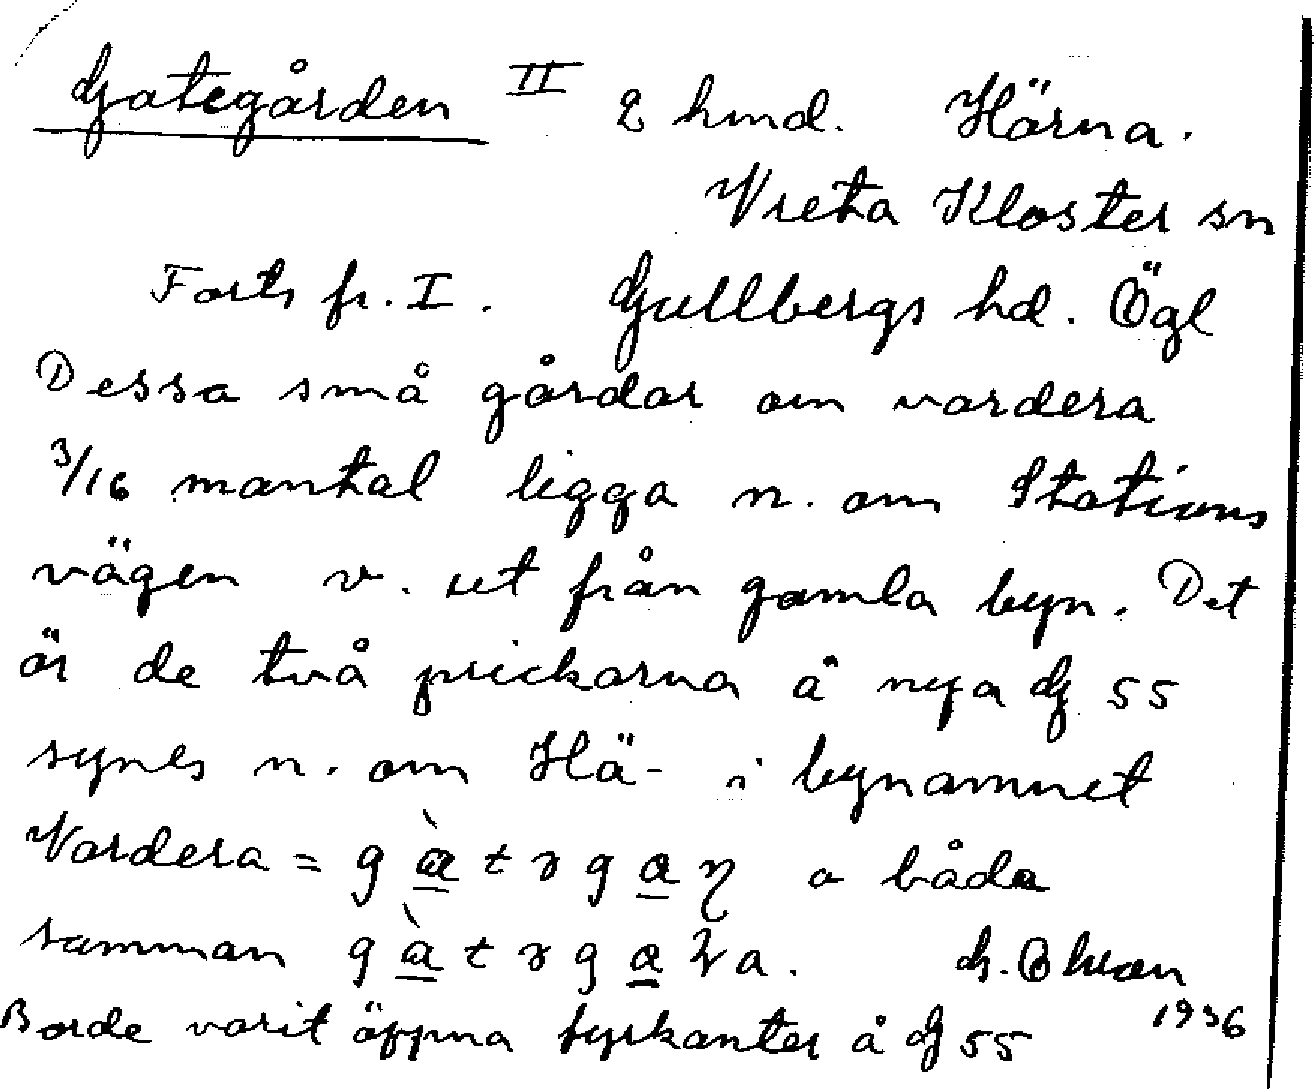 Gategården II 2 hmd. Härna.
Vreta Kloster sn
Forts fr. I. Gullbergs hd. Ögl
Dessa små gårdar om vardera
3/16 mantal ligga n. om Stations
vägen v. ut från gamla byn. Det
är de två prickarna å nya G 55
synes n. om Hä- i bynamnet
Vardera = o båda
samman
1936
Borde varit öppna fyrkanter å G 55